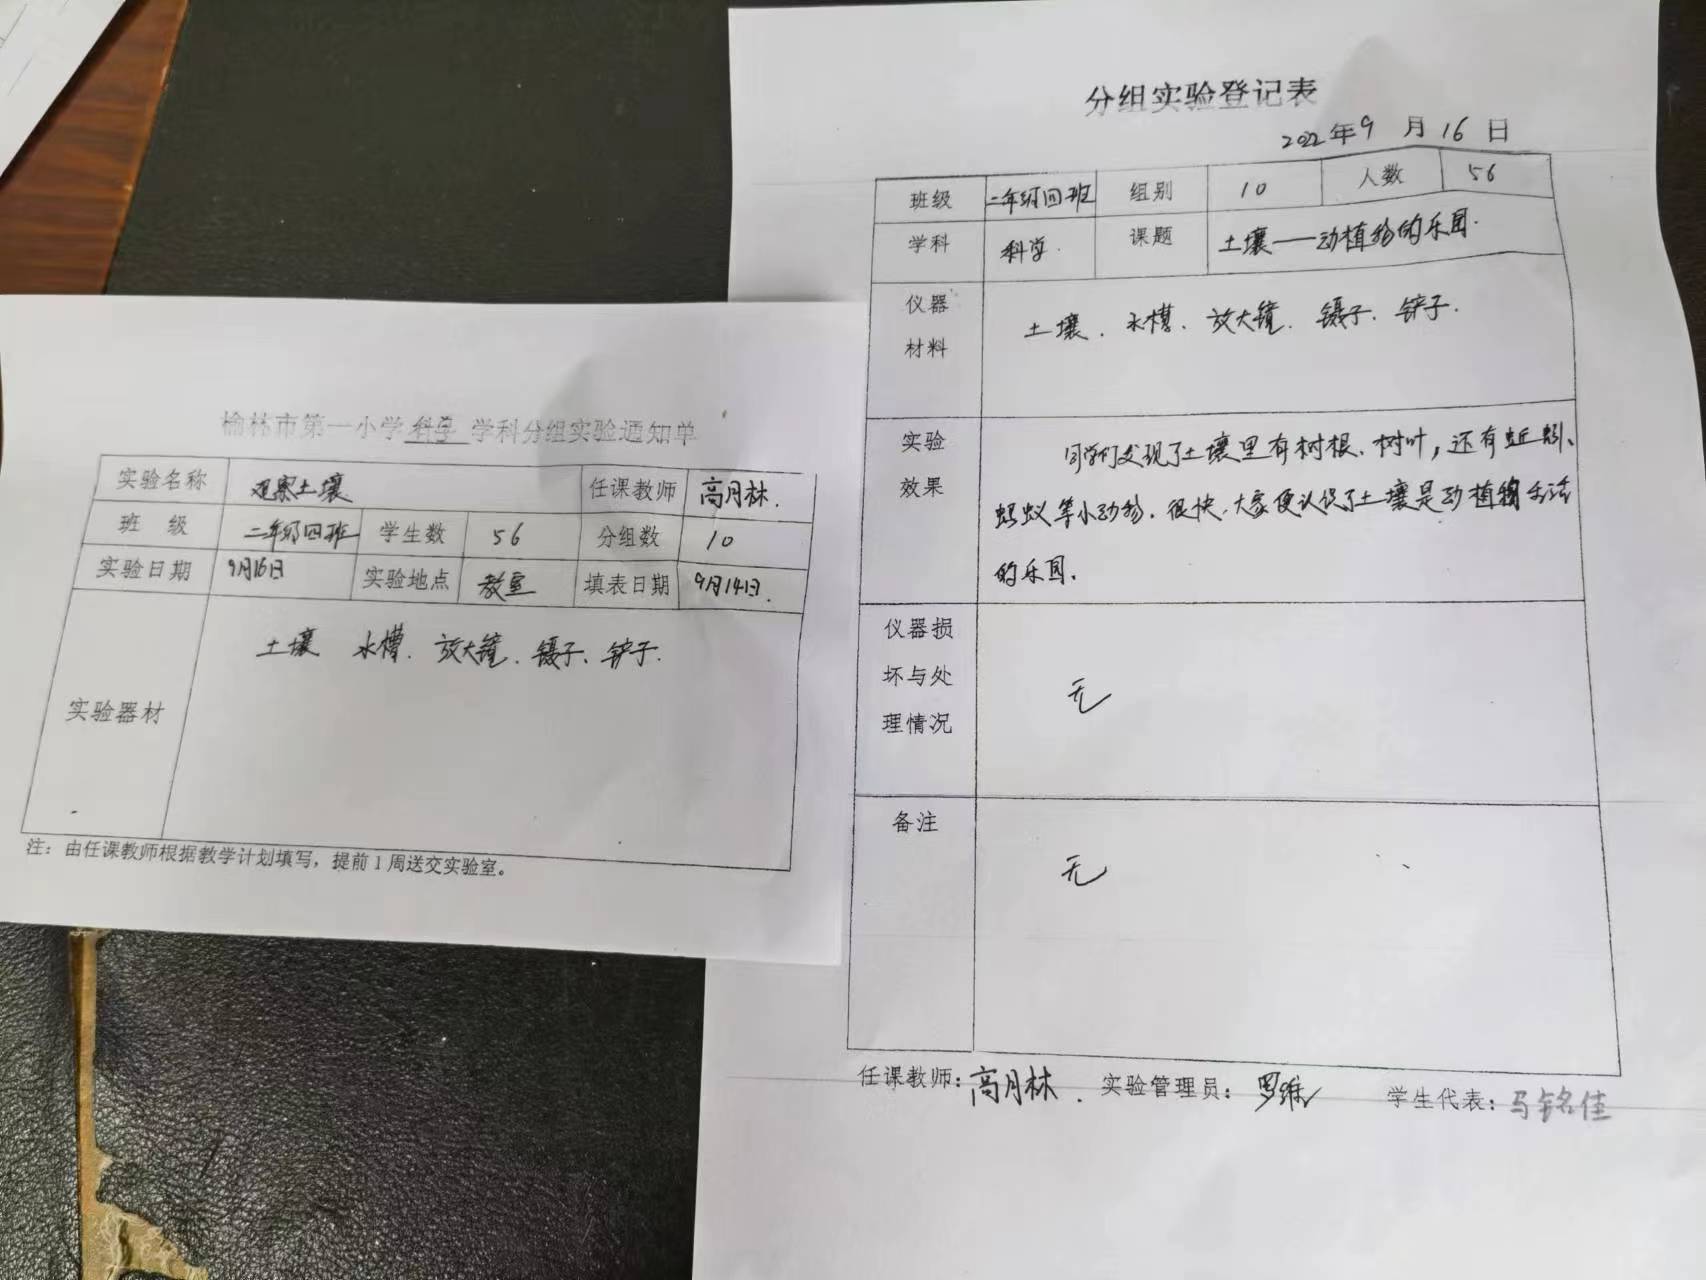 榆林市第一小学科学 学科分组实验通知单
实验名称 观察土壤 任课教师 高月林.
班 级 二年级四班 学生数 56 分组数 10
实验日期 9月16日 实验地点 教室 填表日期 9月14日.
实验器材 土壤 水槽. 放大镜、镊子、铲子.
注：由任课教师根据教学计划填写，提前1周送交实验室。
分组实验登记表
2022年9月16日
班级 二年级四班 组别 10 人数 56
学科 科学. 课题 土壤——动植物的乐园.
仪器
材料
土壤、水槽、放大镜、镊子、铲子.
实验
效果
同学们发现了土壤里有树根、树叶，还有蚯蚓、
蚂蚁等小动物. 很快，大家便认识了土壤是动植物生活
的乐园.
仪器损
坏与处
理情况
无
备注
无
任课教师：高月林. 实验管理员：罗维 学生代表：马铭佳